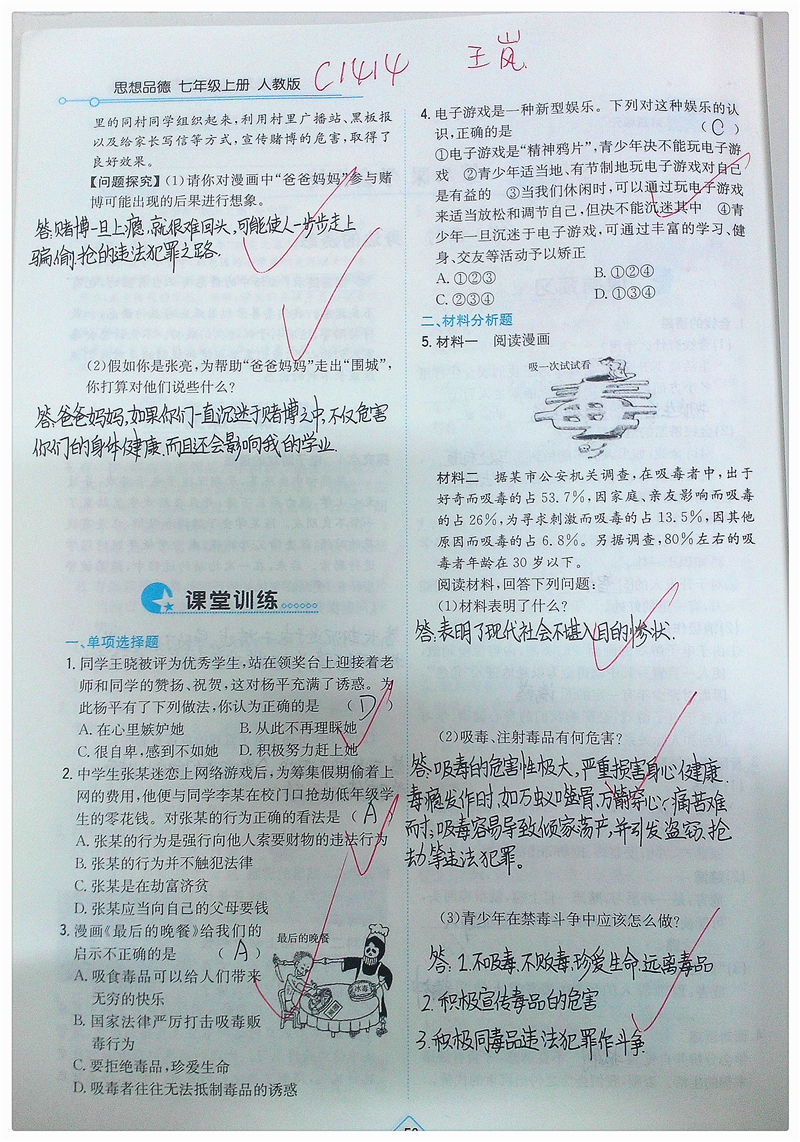 思想品德 七年级上册 人教版
C1414
王岚
里的同村同学组织起来,利用村里广播站、黑板报
以及给家长写信等方式,宣传赌博的危害,取得了
良好效果。
【问题探究】(1)请你对漫画中“爸爸妈妈”参与赌
博可能出现的后果进行想象。
答:赌博一旦上瘾,就很难回头,可能使人一步步走上
骗,偷,抢的违法犯罪之路.
(2)假如你是张亮,为帮助“爸爸妈妈”走出“围城”,
你打算对他们说些什么?
答:爸爸妈妈,如果你们一直沉迷于赌博之中,不仅危害
你们的身体健康,而且还会影响我的学业.
课堂训练
一、单项选择题
1. 同学王晓被评为优秀学生,站在领奖台上迎接着老
师和同学的赞扬、祝贺,这对杨平充满了诱惑。为
此杨平有了下列做法,你认为正确的是 ( D )
A. 在心里嫉妒她 B. 从此不再理睬她
C. 很自卑,感到不如她 D. 积极努力赶上她
2. 中学生张某迷恋上网络游戏后,为筹集假期偷着上
网的费用,他便与同学李某在校门口抢劫低年级学
生的零花钱。对张某的行为正确的看法是 ( A )
A. 张某的行为是强行向他人索要财物的违法行为
B. 张某的行为并不触犯法律
C. 张某是在劫富济贫
D. 张某应当向自己的父母要钱
3. 漫画《最后的晚餐》给我们的
启示不正确的是 ( A )
A. 吸食毒品可以给人们带来
无穷的快乐
B. 国家法律严厉打击吸毒贩
毒行为
C. 要拒绝毒品,珍爱生命
D. 吸毒者往往无法抵制毒品的诱惑
最后的晚餐
冰毒
4. 电子游戏是一种新型娱乐。下列对这种娱乐的认
识,正确的是 ( C )
①电子游戏是“精神鸦片”,青少年决不能玩电子游
戏 ②青少年适当地、有节制地玩电子游戏对自己
是有益的 ③当我们休闲时,可以通过玩电子游戏
来适当放松和调节自己,但决不能沉迷其中 ④青
少年一旦沉迷于电子游戏,可通过丰富的学习、健
身、交友等活动予以矫正
A. ①②③ B. ①②④
C. ②③④ D. ①③④
二、材料分析题
5. 材料一 阅读漫画
吸一次试试看
材料二 据某市公安机关调查,在吸毒者中,出于
好奇而吸毒的占 53.7%,因家庭、亲友影响而吸毒
的占 26%,为寻求刺激而吸毒的占 13.5%,因其他
原因而吸毒的占 6.8%。另据调查,80%左右的吸
毒者年龄在 30 岁以下。
阅读材料,回答下列问题:
(1)材料表明了什么?
答:表明了现代社会不堪入目的惨状.
(2)吸毒、注射毒品有何危害?
答:吸毒的危害性极大,严重损害身心健康.
毒瘾发作时,如万蚁啮骨,万箭穿心,痛苦难
耐,吸毒容易导致倾家荡产,并引发盗窃、抢
劫等违法犯罪。
(3)青少年在禁毒斗争中应该怎么做?
答: 1.不吸毒,不贩毒,珍爱生命,远离毒品
2. 积极宣传毒品的危害
3.积极同毒品违法犯罪作斗争